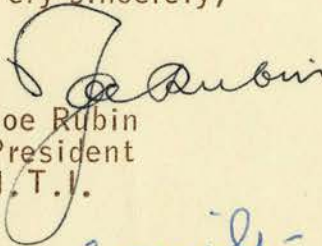 ery sincerely,
Joe Rubin
oe Rubin
President
.T.I.